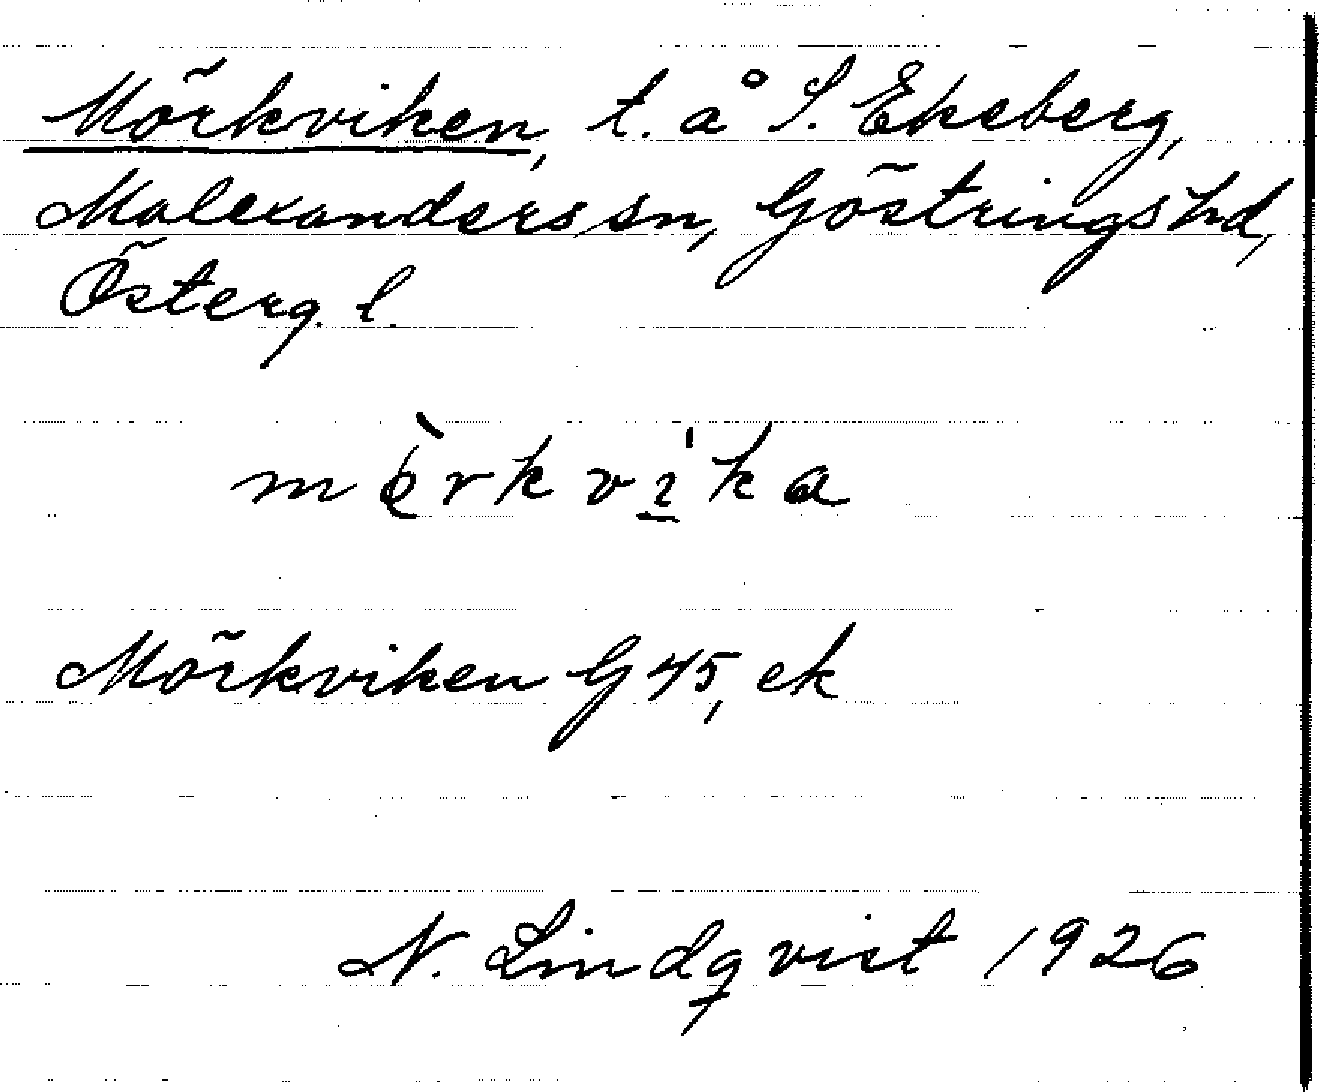 Mörkviken, t. å S. Ekeberg,
Malexanders sn, Göstrings hd,
Österg. l.
mörkvika
Mörkviken G 45, ek
N. Lindqvist 1926